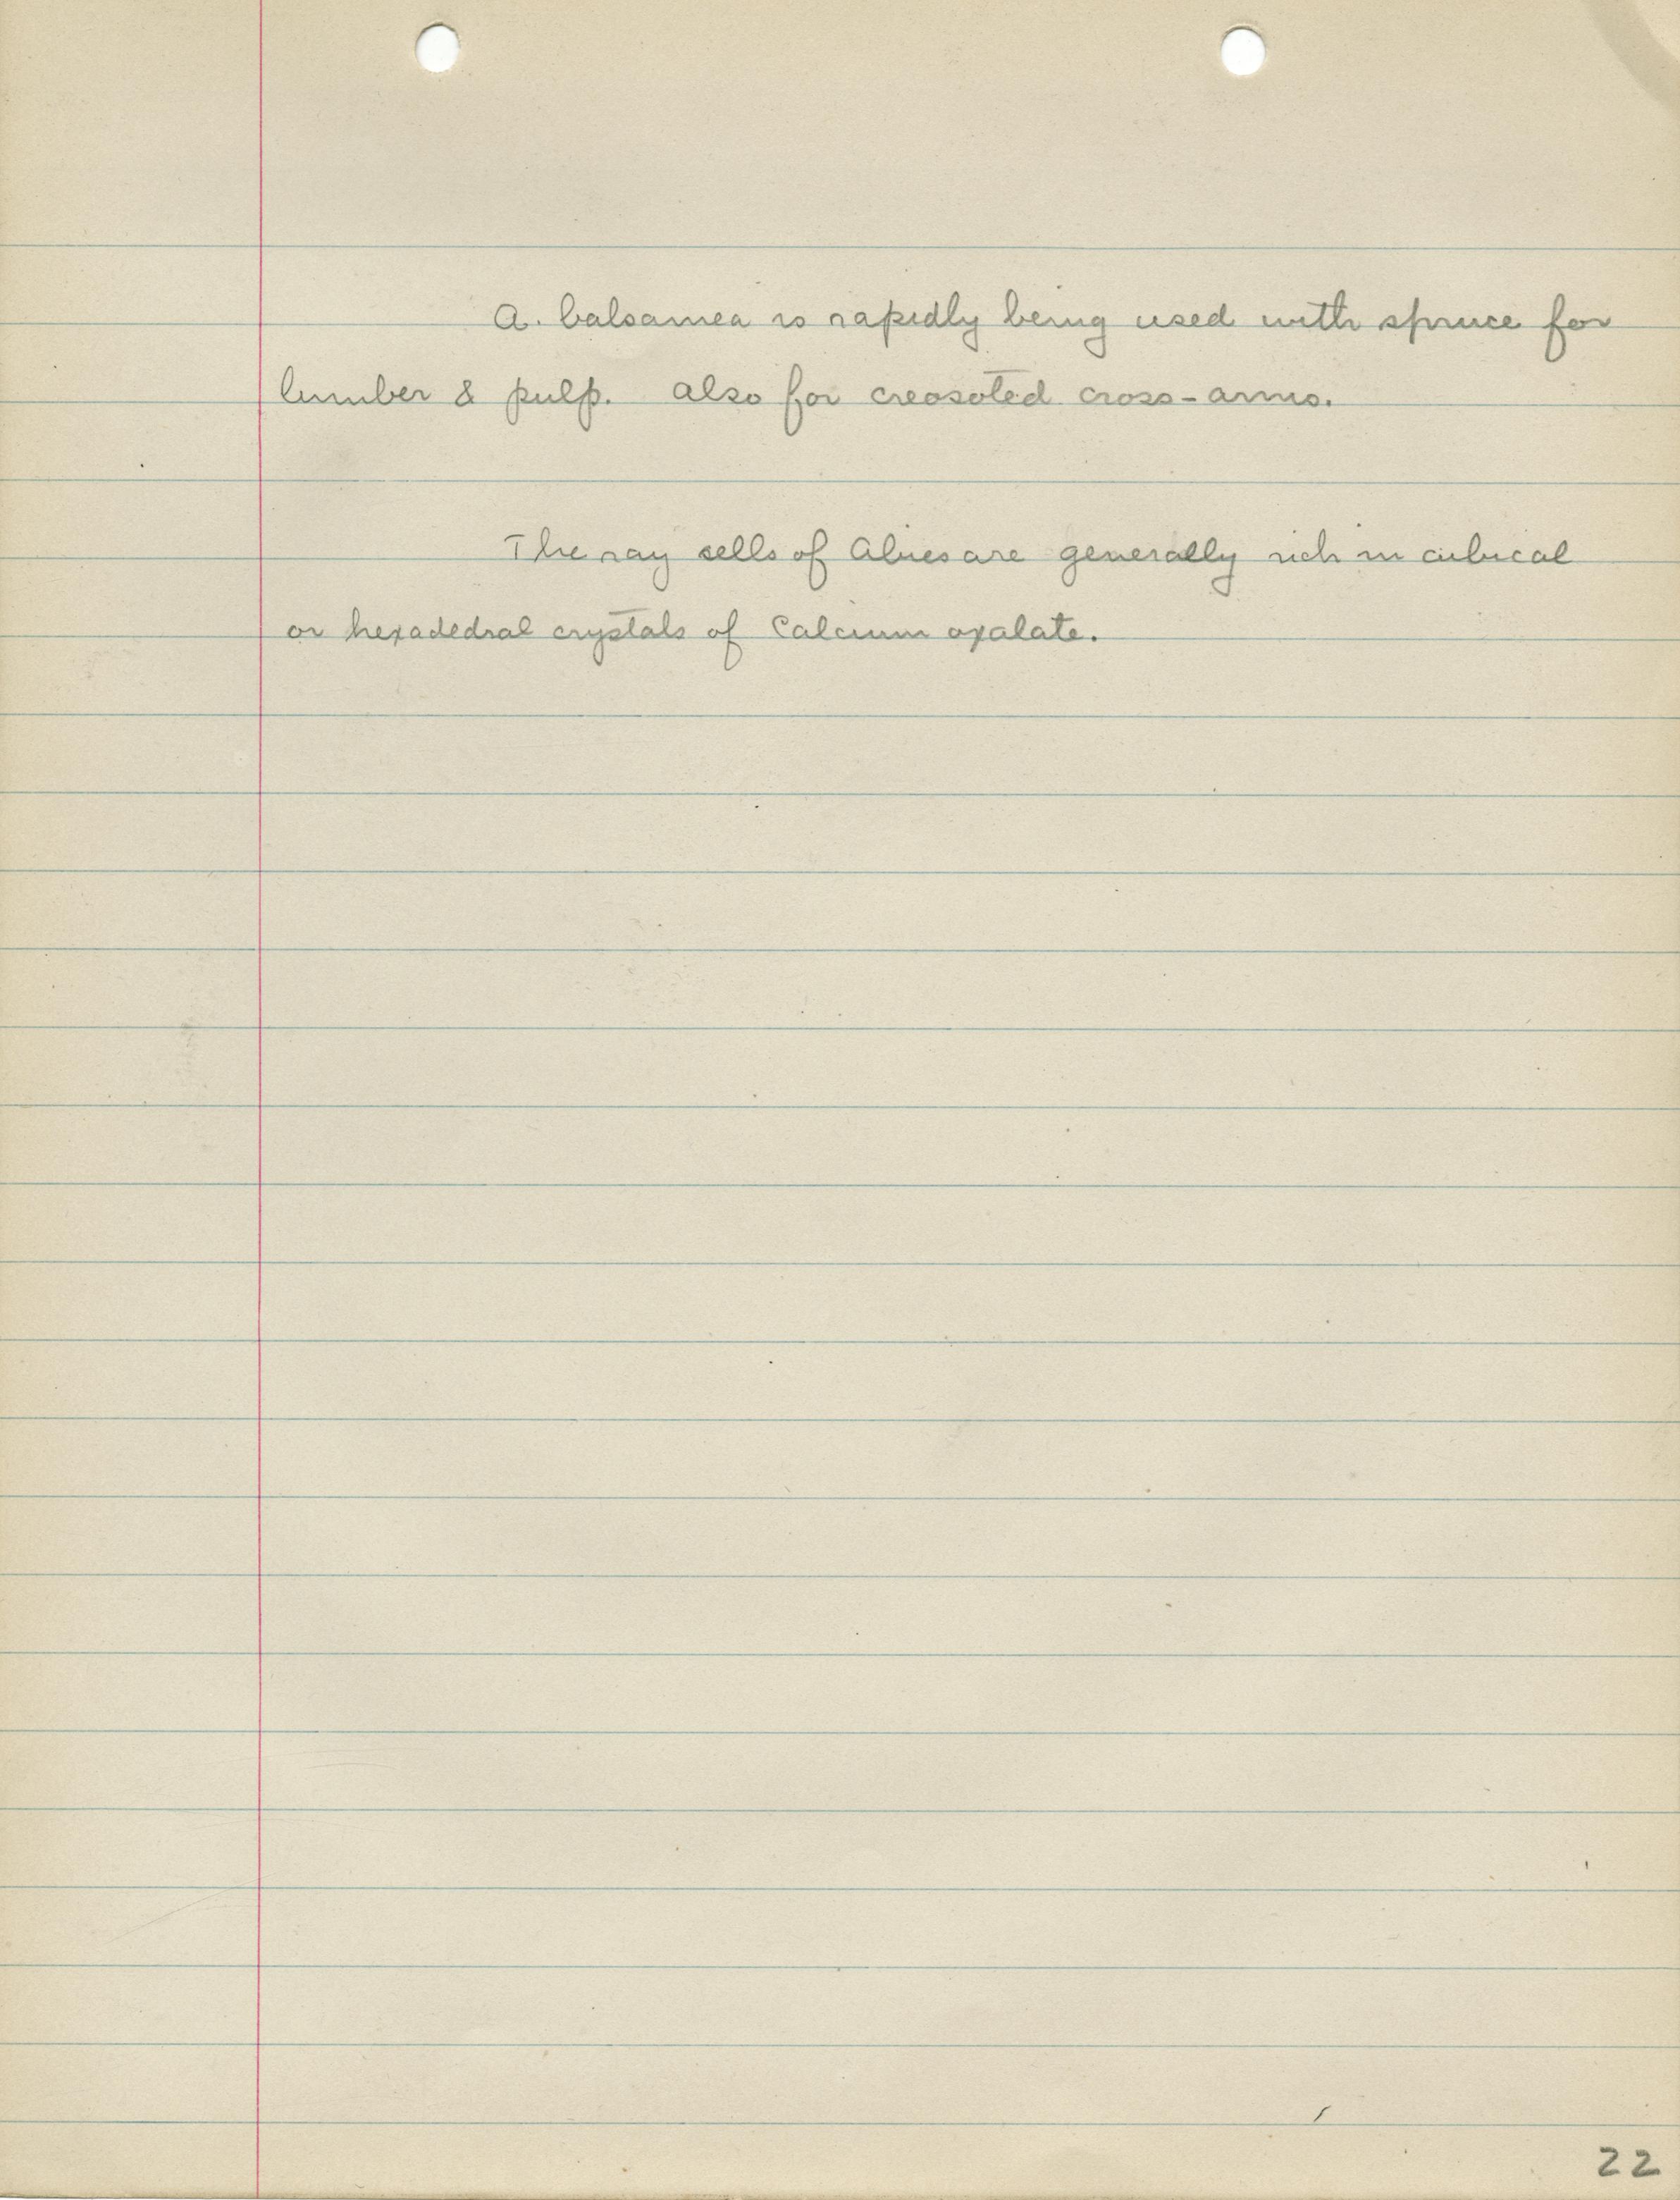 A. balsamea is rapidly being used with spruce for
lumber & pulp. also for creosoted cross-arms.
The ray sells of Abies are generally rich in cubical
or hexadedral crystals of Calcium oxalate.
22